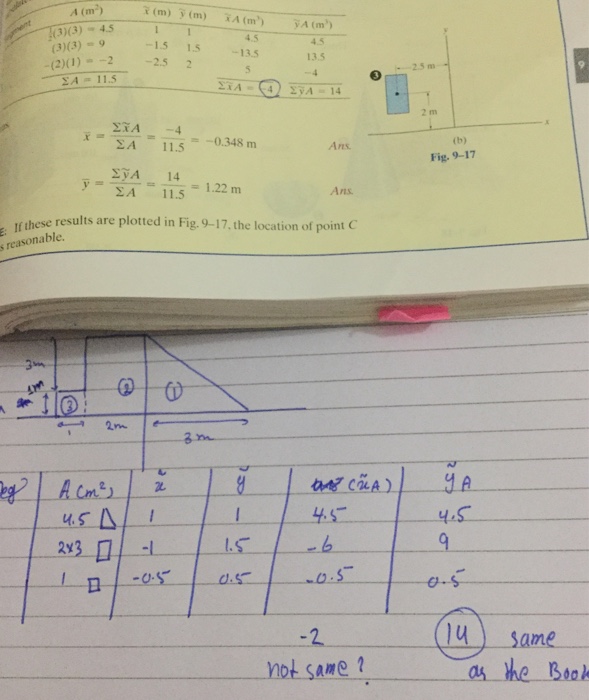 A (m²) x̃ (m) ỹ (m) x̃A (m³) ỹA (m³)
½(3)(3) = 4.5 1 1 4.5 4.5
(3)(3) = 9 -1.5 1.5 -13.5 13.5
-(2)(1) = -2 -2.5 2 5 -4
ΣA = 11.5 Σx̃A = -4 ΣỹA = 14
x̄ = Σx̃A / ΣA = -4 / 11.5 = -0.348 m Ans.
ȳ = ΣỹA / ΣA = 14 / 11.5 = 1.22 m Ans.
If these results are plotted in Fig. 9–17, the location of point C
s reasonable.
y
3
2.5 m
2 m
x
(b)
Fig. 9–17
9
3m
1m
3
2
1
1
2m
3m
A (m²) x̃ ỹ (x̃A) ỹA
4.5 1 1 4.5 4.5
2x3 -1 1.5 -6 9
1 -0.5 0.5 -0.5 0.5
-2 14 same
not same? as the Book